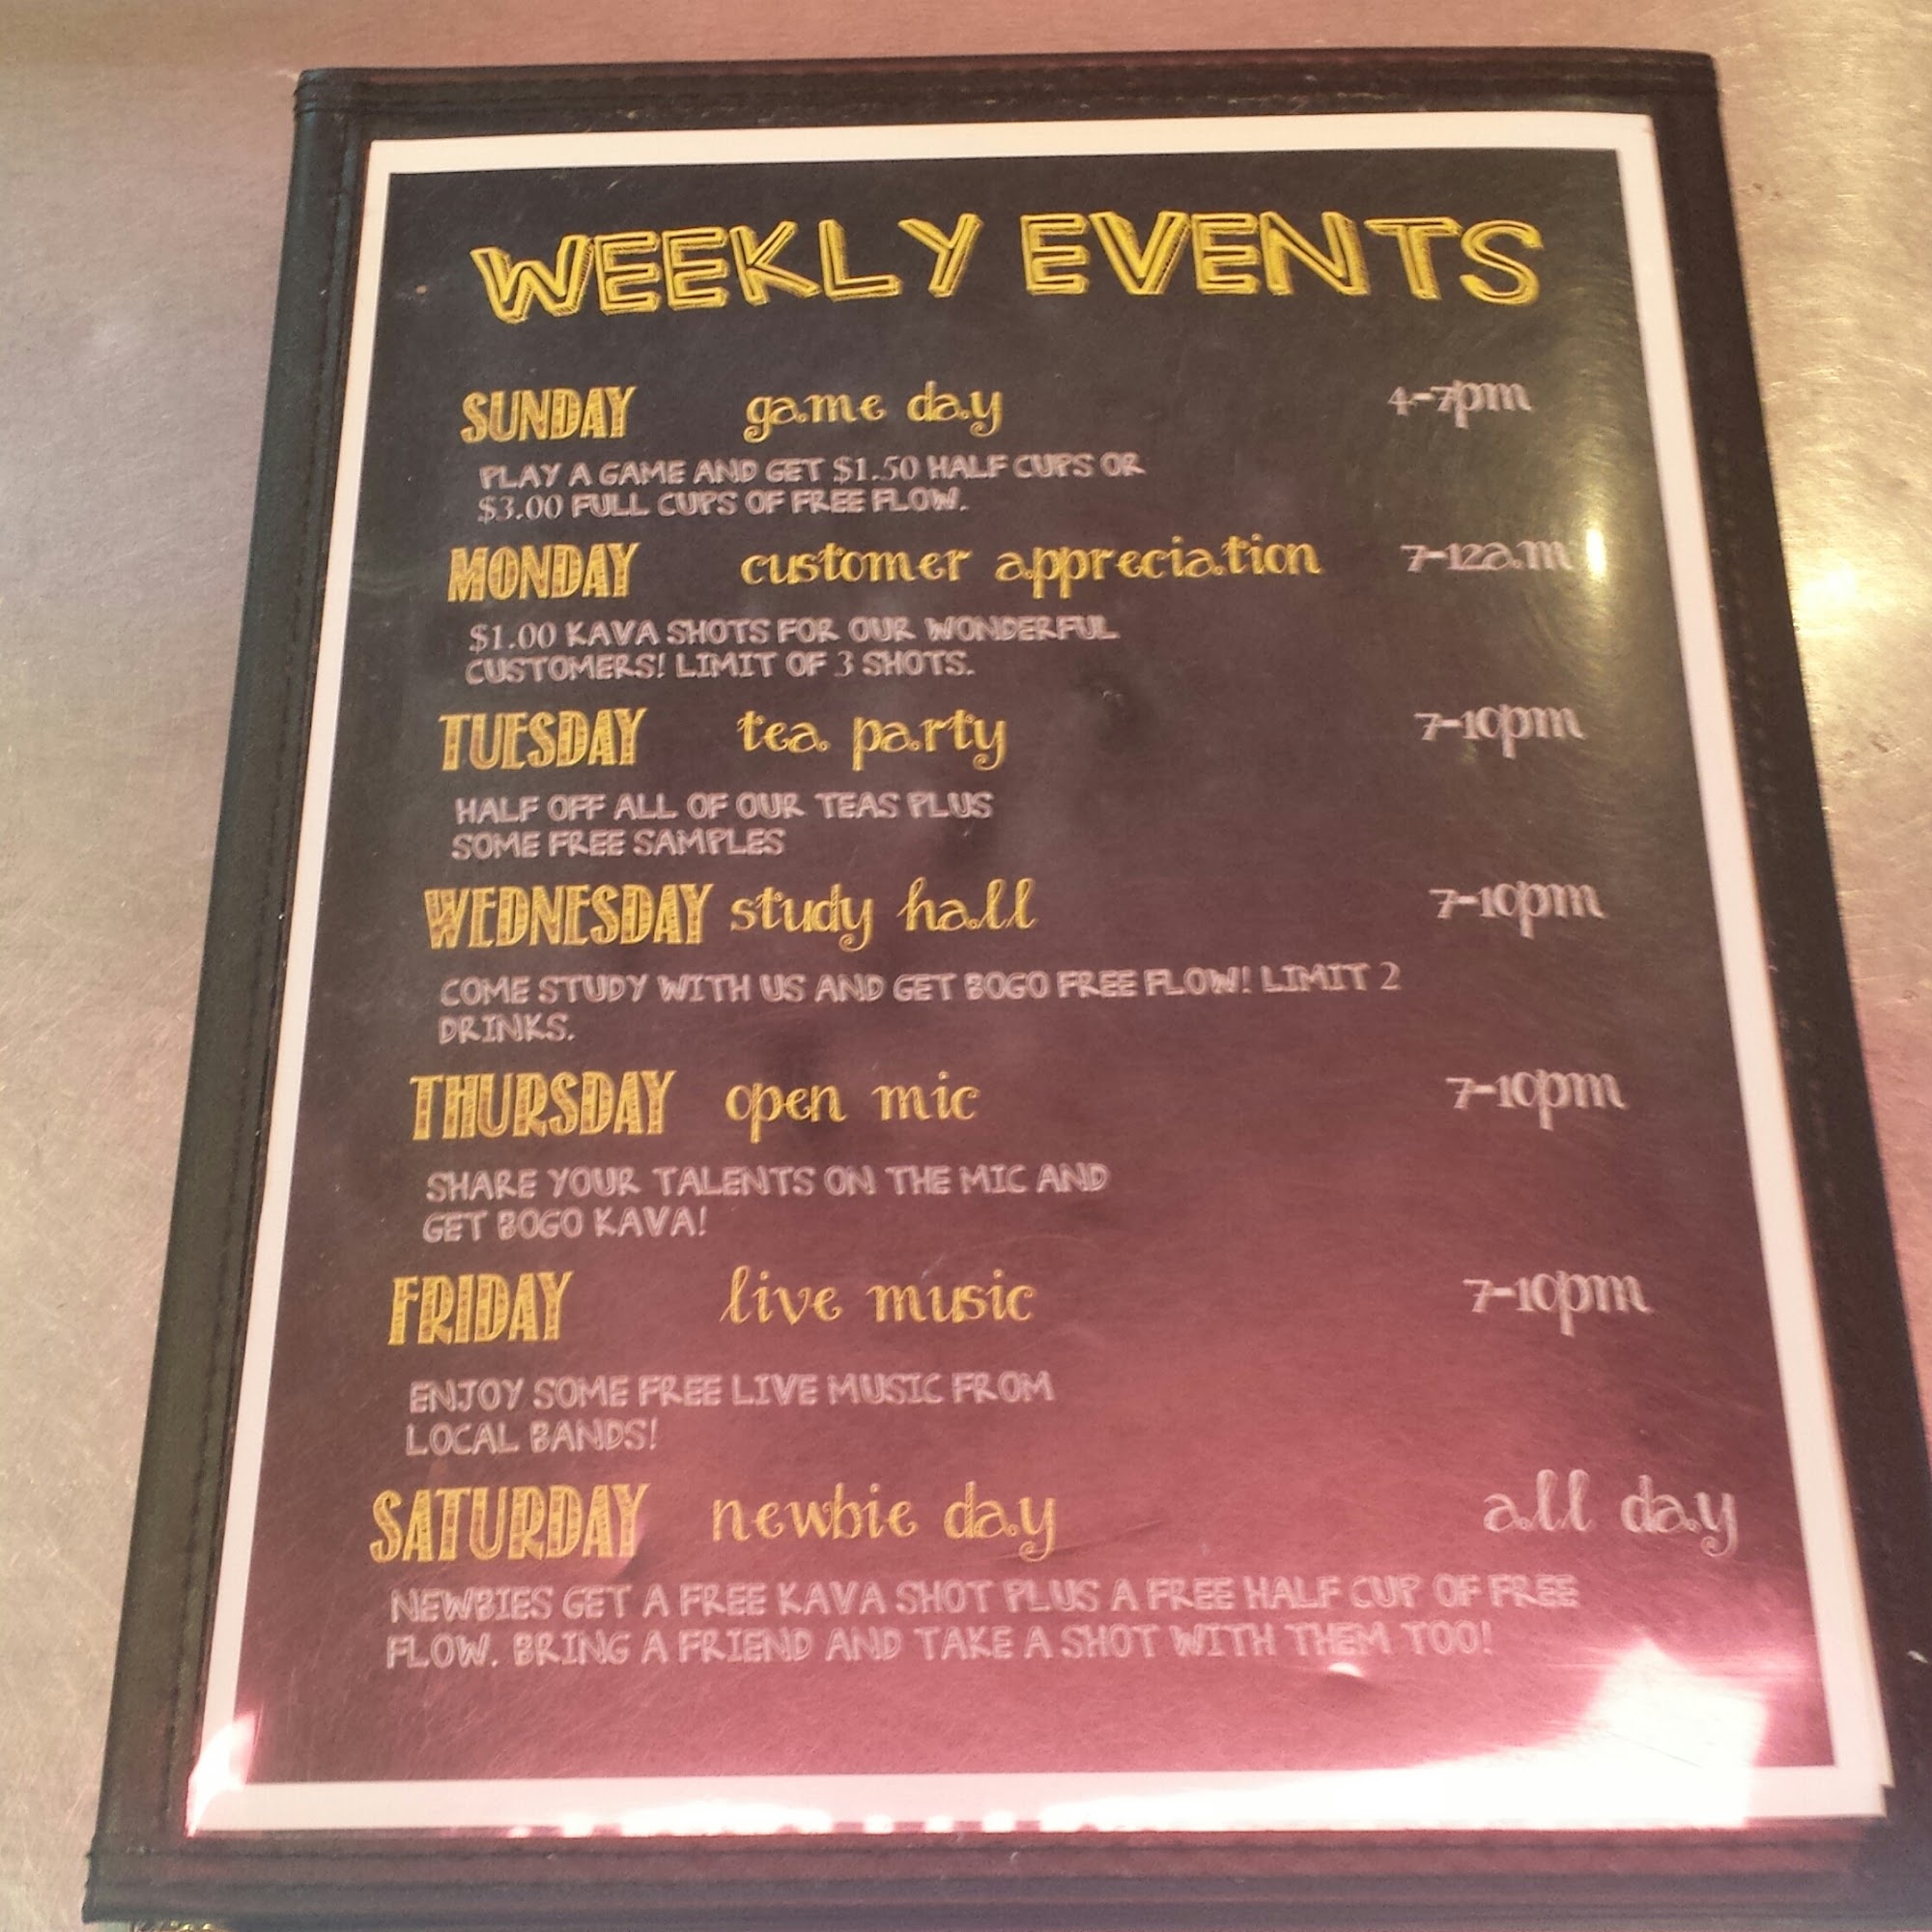 WEEKLY EVENTS
SUNDAY game day 4-7pm
PLAY A GAME AND GET $1.50 HALF CUPS OR
$3.00 FULL CUPS OF FREE FLOW.
MONDAY customer appreciation 7-12am
$1.00 KAVA SHOTS FOR OUR WONDERFUL
CUSTOMERS! LIMIT OF 3 SHOTS.
TUESDAY tea party 7-10pm
HALF OFF ALL OF OUR TEAS PLUS
SOME FREE SAMPLES
WEDNESDAY study hall 7-10pm
COME STUDY WITH US AND GET BOGO FREE FLOW! LIMIT 2
DRINKS.
THURSDAY open mic 7-10pm
SHARE YOUR TALENTS ON THE MIC AND
GET BOGO KAVA!
FRIDAY live music 7-10pm
ENJOY SOME FREE LIVE MUSIC FROM
LOCAL BANDS!
SATURDAY newbie day all day
NEWBIES GET A FREE KAVA SHOT PLUS A FREE HALF CUP OF FREE
FLOW. BRING A FRIEND AND TAKE A SHOT WITH THEM TOO!